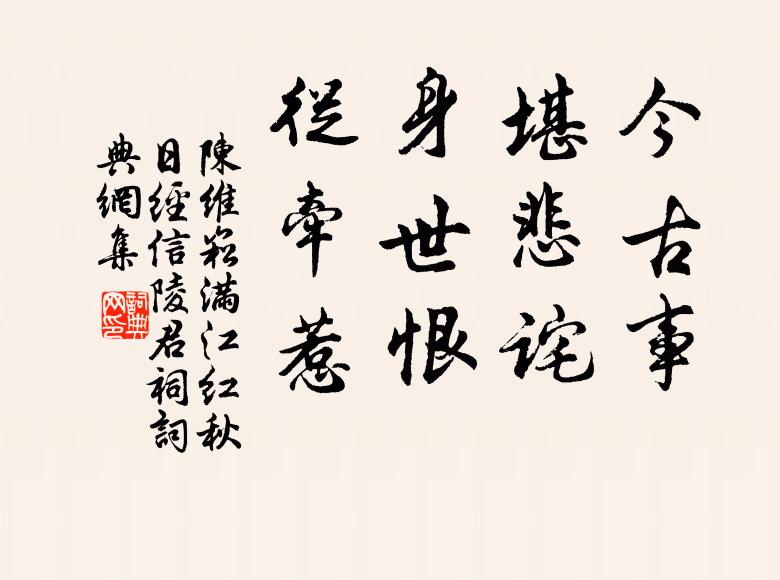 今古事
堪悲詫
身世恨
從牽惹
陳維崧滿江紅秋
日經信陵君祠詞
典網集
詞典网印